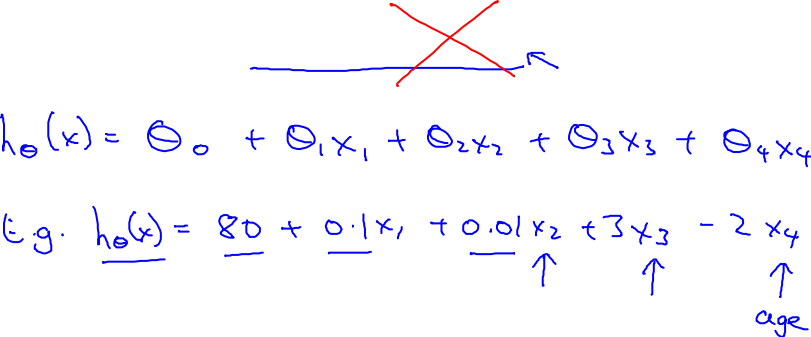 hθ(x) = θ₀ + θ₁x₁ + θ₂x₂ + θ₃x₃ + θ₄x₄
E.g. hθ(x) = 80 + 0.1x₁ + 0.01x₂ + 3x₃ - 2x₄
age